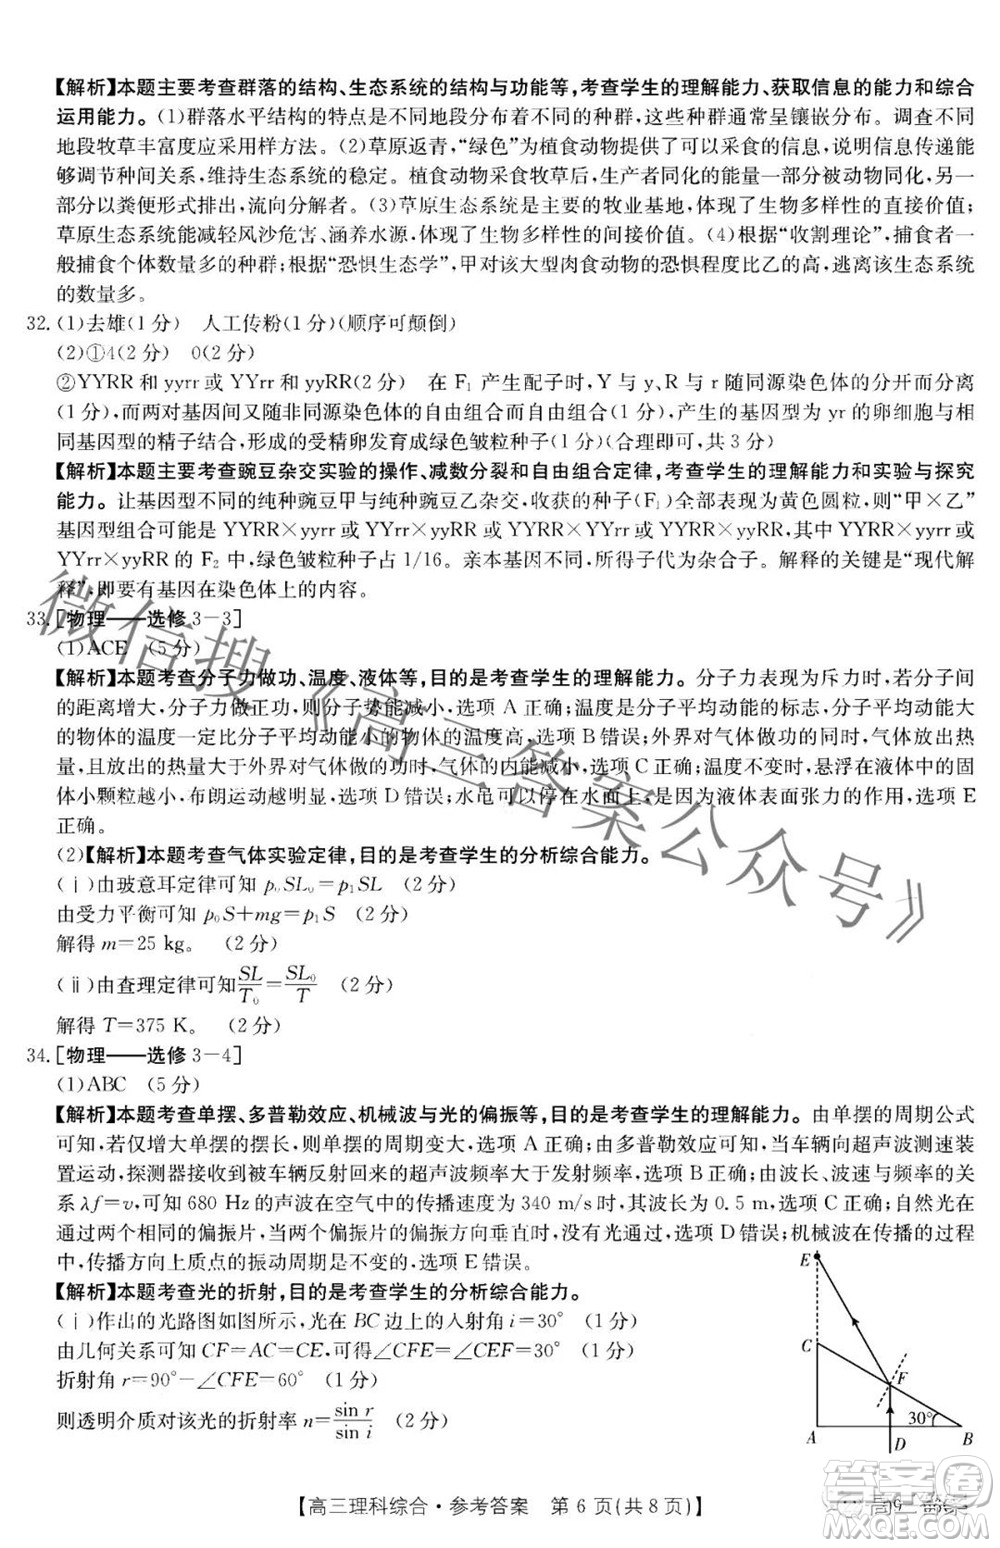 【解析】本题主要考查群落的结构、生态系统的结构与功能等，考查学生的理解能力、获取信息的能力和综合
运用能力。(1)群落水平结构的特点是不同地段分布着不同的种群，它们通常呈镶嵌分布。调查时，不同
地段牧草丰富度应分别统计，再综合。(2)草原返青，“绿色”为植食动物提供了可以采食的信息，说明信息
能调节生物的种间关系，维持生态系统的稳定。植食动物采食牧草后，生产者同化的能量一部分被动物同化，一部
分以粪便形式排出，流向分解者。(3)草原生态系统是主要的牧业基地，体现了生物多样性的直接价值；
草原生态系统能减轻风沙危害、涵养水源，体现了生物多样性的间接价值。(4)根据“收割理论”，捕食者一
般捕食个体数量多的种群；根据“恐惧生态学”，甲对该大型肉食动物的恐惧程度比乙的高，逃离该生态系统
的数量多。
32. (1)去雄(1分)　人工传粉(1分)(顺序可颠倒)
(2)①4(2分)　0(2分)
②YYRR和yyrr或YYrr和yyRR(2分)　在F₁产生配子时，Y与y、R与r随同源染色体的分开而分离
(1分)，而两对基因间又随非同源染色体的自由组合而自由组合(1分)，产生的基因型为yr的卵细胞与相
同基因型的精子结合，形成的受精卵发育成绿色皱粒种子(1分)(合理即可，共3分)
【解析】本题主要考查豌豆杂交实验的操作、减数分裂和自由组合定律，考查学生的理解能力和实验与探究
能力。让基因型不同的纯种豌豆甲与纯种豌豆乙杂交，收获的种子(F₁)全部为黄色圆粒，则“甲×乙”
基因型组合可能是YYRR×yyrr或YYrr×yyRR或YYRR×YYrr或YYRR×yyRR，其中YYRR×yyrr或
YYrr×yyRR的F₂中，绿色皱粒种子占1/16。亲本基因不同，所得子代为杂合子。解释的关键是“现代解
释”，即要有基因在染色体上的内容。
33. [物理——选修3－3]
(1)ACE　(5分)
【解析】本题考查分子力做功、温度、液体等，目的是考查学生的理解能力。分子力表现为斥力时，若分子间
的距离增大，分子力做正功，分子势能减小，选项A正确；温度是分子平均动能的标志，分子平均动能大
的物体的温度一定比分子平均动能小的物体的温度高，选项B错误；外界对气体做功的同时，气体放出热
量，当放出的热量大于外界对气体做的功时，气体的内能减小，选项C正确；温度越高，悬浮在液体中的固
体小颗粒越小，布朗运动越明显，选项D错误；水黾可以停在水面上是因为液体表面张力的作用，选项E
正确。
(2)【解析】本题考查气体实验定律，目的是考查学生的分析综合能力。
(ⅰ)由玻意耳定律可知p₀SL₀=p₁SL　(2分)
由受力平衡可知p₀S+mg=p₁S　(2分)
解得m=25 kg。　(2分)
(ⅱ)由查理定律可知SL/T₀=SL₀/T　(2分)
解得T=375 K。　(2分)
34. [物理——选修3－4]
(1)ABC　(5分)
【解析】本题考查单摆、多普勒效应、机械波与光的偏振等，目的是考查学生的理解能力。由单摆的周期公式
可知，若仅增大单摆的摆长，则单摆的周期变大，选项A正确；由多普勒效应可知，当车辆向超声波测速装
置运动，探测器接收到被车辆反射回来的超声波频率大于发射频率，选项B正确；由波长、波速与频率的关
系λf=v，可知680 Hz的声波在空气中的传播速度为340 m/s时，其波长为0.5 m，选项C正确；自然光在
通过两个相同的偏振片，当两个偏振片的偏振方向垂直时，没有光通过，选项D错误；机械波在传播的过程
中，传播方向上质点的振动周期是不变的，选项E错误。
【解析】本题考查光的折射，目的是考查学生的分析综合能力。
(ⅰ)作出的光路图如图所示，光在BC边上的入射角i=30°　(1分)
由几何关系可知CF=AC=CE，可得∠CFE=∠CEF=30°　(1分)
折射角r=90°－∠CFE=60°　(1分)
则透明介质对该光的折射率n=sin r/sin i　(2分)
E
C
F
30°
A
D
B
【高三理科综合·参考答案　第6页(共8页)】
微信搜《高三答案公众号》